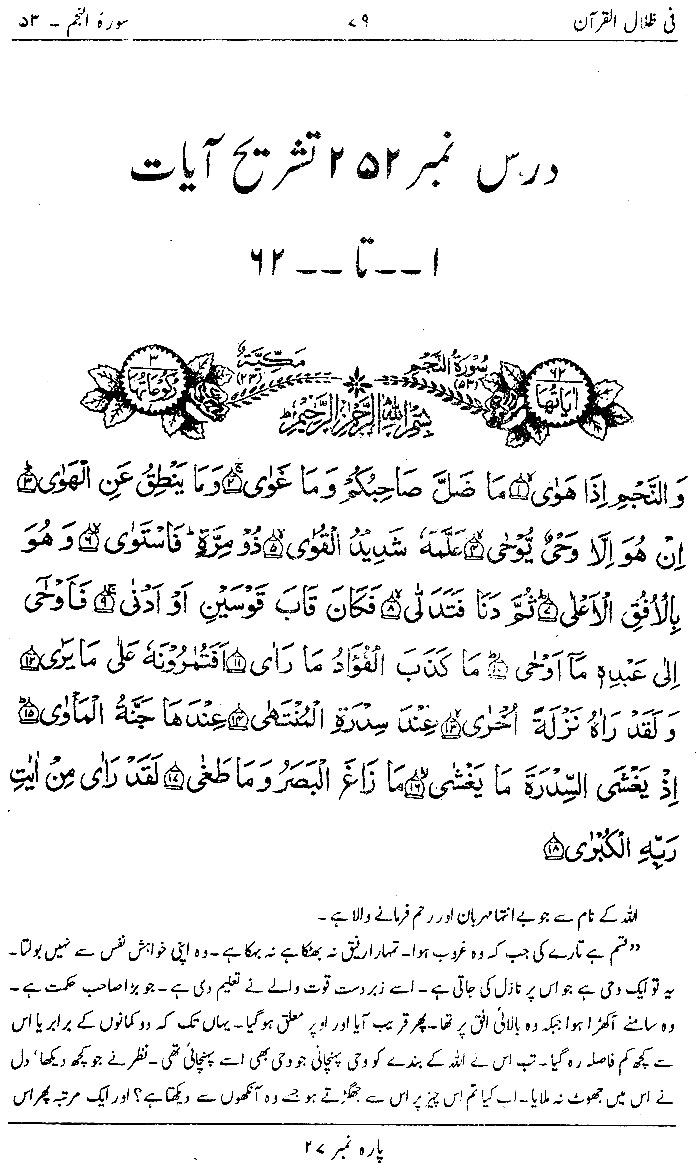 فی ظلال القرآن ۷۹ سورۃ النجم - ۵۳
درس نمبر ۲۵۲ تشریح آیات
۱ -- تا -- ۶۲
۶۲ اٰیَاتُهَا سُوۡرَةُ النَّجۡمِ (۵۳) مَكِّيَّةٌ (۲۳) ۳ رُكُوۡعَاتُهَا
بِسۡمِ اللّٰهِ الرَّحۡمٰنِ الرَّحِيۡمِ
وَالنَّجۡمِ اِذَا هَوٰى ۙ﴿۱﴾ مَا ضَلَّ صَاحِبُكُمۡ وَ مَا غَوٰى ۚ﴿۲﴾ وَ مَا يَنۡطِقُ عَنِ الۡهَوٰى ؕ﴿۳﴾
اِنۡ هُوَ اِلَّا وَحۡىٌ يُّوۡحٰى ۙ﴿۴﴾ عَلَّمَهٗ شَدِيۡدُ الۡقُوٰى ۙ﴿۵﴾ ذُوۡ مِرَّةٍ ؕ فَاسۡتَوٰى ۙ﴿۶﴾ وَ هُوَ
بِالۡاُفُقِ الۡاَعۡلٰى ؕ﴿۷﴾ ثُمَّ دَنَا فَتَدَلّٰى ۙ﴿۸﴾ فَكَانَ قَابَ قَوۡسَيۡنِ اَوۡ اَدۡنٰى ۚ﴿۹﴾ فَاَوۡحٰٓى
اِلٰى عَبۡدِهٖ مَاۤ اَوۡحٰى ؕ﴿۱۰﴾ مَا كَذَبَ الۡفُؤَادُ مَا رَاٰى ﴿۱۱﴾ اَفَتُمٰرُوۡنَهٗ عَلٰى مَا يَرٰى ﴿۱۲﴾
وَ لَقَدۡ رَاٰهُ نَزۡلَةً اُخۡرٰى ۙ﴿۱۳﴾ عِنۡدَ سِدۡرَةِ الۡمُنۡتَهٰى ﴿۱۴﴾ عِنۡدَهَا جَنَّةُ الۡمَاۡوٰى ؕ﴿۱۵﴾
اِذۡ يَغۡشَى السِّدۡرَةَ مَا يَغۡشٰى ۙ﴿۱۶﴾ مَا زَاغَ الۡبَصَرُ وَ مَا طَغٰى ﴿۱۷﴾ لَقَدۡ رَاٰى مِنۡ اٰيٰتِ
رَبِّهِ الۡكُبۡرٰى ﴿۱۸﴾
اللہ کے نام سے جو بے انتہا مہربان اور رحم فرمانے والا ہے ۔
”قسم ہے تارے کی جب کہ وہ غروب ہوا۔ تمہارا رفیق نہ بھٹکا ہے نہ بہکا ہے ۔ وہ اپنی خواہش نفس سے نہیں بولتا ۔
یہ تو ایک وحی ہے جو اس پر نازل کی جاتی ہے ۔ اسے زبردست قوت والے نے تعلیم دی ہے ۔ جو بڑا صاحب حکمت ہے ۔
وہ سامنے آکھڑا ہوا جبکہ وہ بالائی افق پر تھا ۔ پھر قریب آیا اور اوپر معلق ہو گیا ۔ یہاں تک کہ دو کمانوں کے برابر یا اس
سے کچھ کم فاصلہ رہ گیا ۔ تب اس نے اللہ کے بندے کو وحی پہنچائی جو وحی بھی اسے پہنچائی تھی ۔ نظر نے جو کچھ دیکھا‘ دل
نے اس میں جھوٹ نہ ملایا ۔ اب کیا تم اس چیز پر اس سے جھگڑتے ہو جسے وہ آنکھوں سے دیکھتا ہے ؟ اور ایک مرتبہ پھر اس
پارہ نمبر ۲۷